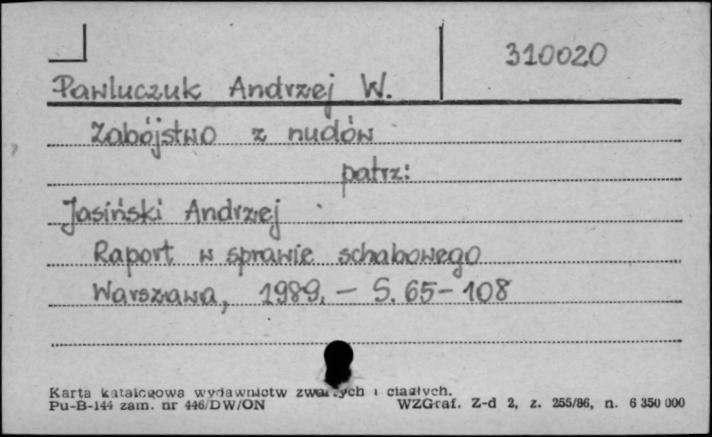 310020
Pawluczuk Andrzej W.
Zabójstwo z nudów
patrz:
Jasiński Andrzej
Raport w sprawie schabowego
Warszawa, 1989. – S. 65–108
Karta katalogowa wydawnictw zwartych i ciągłych.
Pu-B-144 zam. nr 446/DW/ON
WZGraf. Z-d 2, z. 255/86, n. 6 350 000